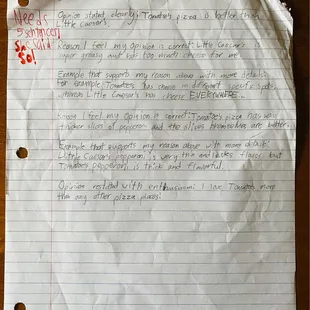 Needs
5 sentences
Opinion stated clearly: Tomatoe's pizza is better than
Little Caesars.
Reason I feel my opinion is correct: Little Caesars is
super greasy and has too much cheese for me.
Example that supports my reason above with more detail:
for example, Tomatoes has cheese in different specific spots,
whereas Little Caesar's has cheese EVERYWHERE...
Reason I feel my opinion is correct: Tomatoe's pizza has way
thicker slices of pepperoni and the slices themselves are better.
Example that supports my reason above with more detail:
Little Caesar's pepperoni is very thin and lacks flavor but
Tomatoes pepperoni is thick and flavorful.
Opinion restated with enthusiasm: I love Tomatoes more
than any other pizza places!